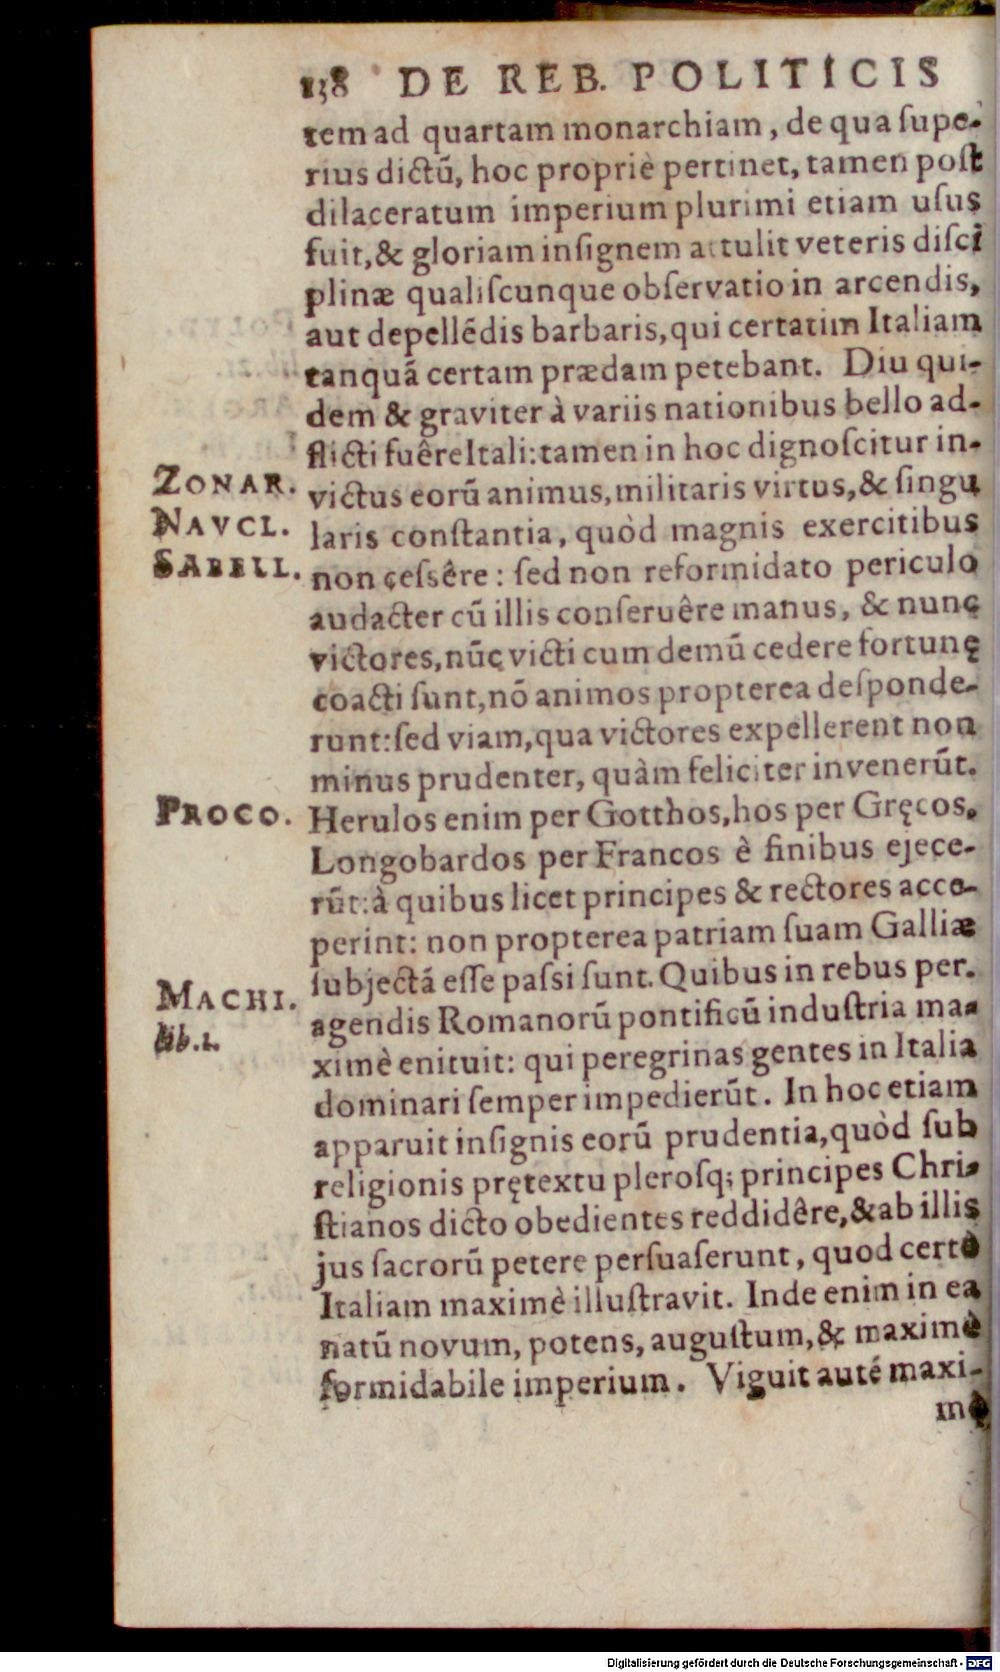 138 DE REB. POLITICIS
tem ad quartam monarchiam, de qua supe-
rius dictũ, hoc propriè pertinet, tamen post
dilaceratum imperium plurimi etiam usus
fuit, & gloriam insignem attulit veteris disci
plinæ qualiscunque observatio in arcendis,
aut depellẽdis barbaris, qui certatim Italiam
tanquã certam prædam petebant. Diu qui-
dem & graviter à variis nationibus bello ad-
flicti fuêre Itali: tamen in hoc dignoscitur in-
ZONAR. victus eorũ animus, militaris virtus, & singu
NAVCL. laris constantia, quòd magnis exercitibus
SABELL. non cessêre: sed non reformidato periculo
audacter cũ illis conseruêre manus, & nunc
victores, nũc victi cum demũ cedere fortunę
coacti sunt, nõ animos propterea desponde-
runt: sed viam, qua victores expellerent non
minus prudenter, quàm feliciter invenerũt.
PROCO. Herulos enim per Gotthos, hos per Gręcos,
Longobardos per Francos è finibus ejece-
rũt: à quibus licet principes & rectores acce-
perint: non propterea patriam suam Galliæ
subjectã esse passi sunt. Quibus in rebus per-
MACHI. agendis Romanorũ pontificũ industria ma-
lib.1. ximè enituit: qui peregrinas gentes in Italia
dominari semper impedierũt. In hoc etiam
apparuit insignis eorũ prudentia, quòd sub
religionis prętextu plerosq; principes Chri-
stianos dicto obedientes reddidêre, & ab illis
jus sacrorũ petere persuaserunt, quod certè
Italiam maximè illustravit. Inde enim in ea
natũ novum, potens, augustum, & maximè
formidabile imperium. Viguit autẽ maxi-
mè
Digitalisierung gefördert durch die Deutsche Forschungsgemeinschaft - DFG